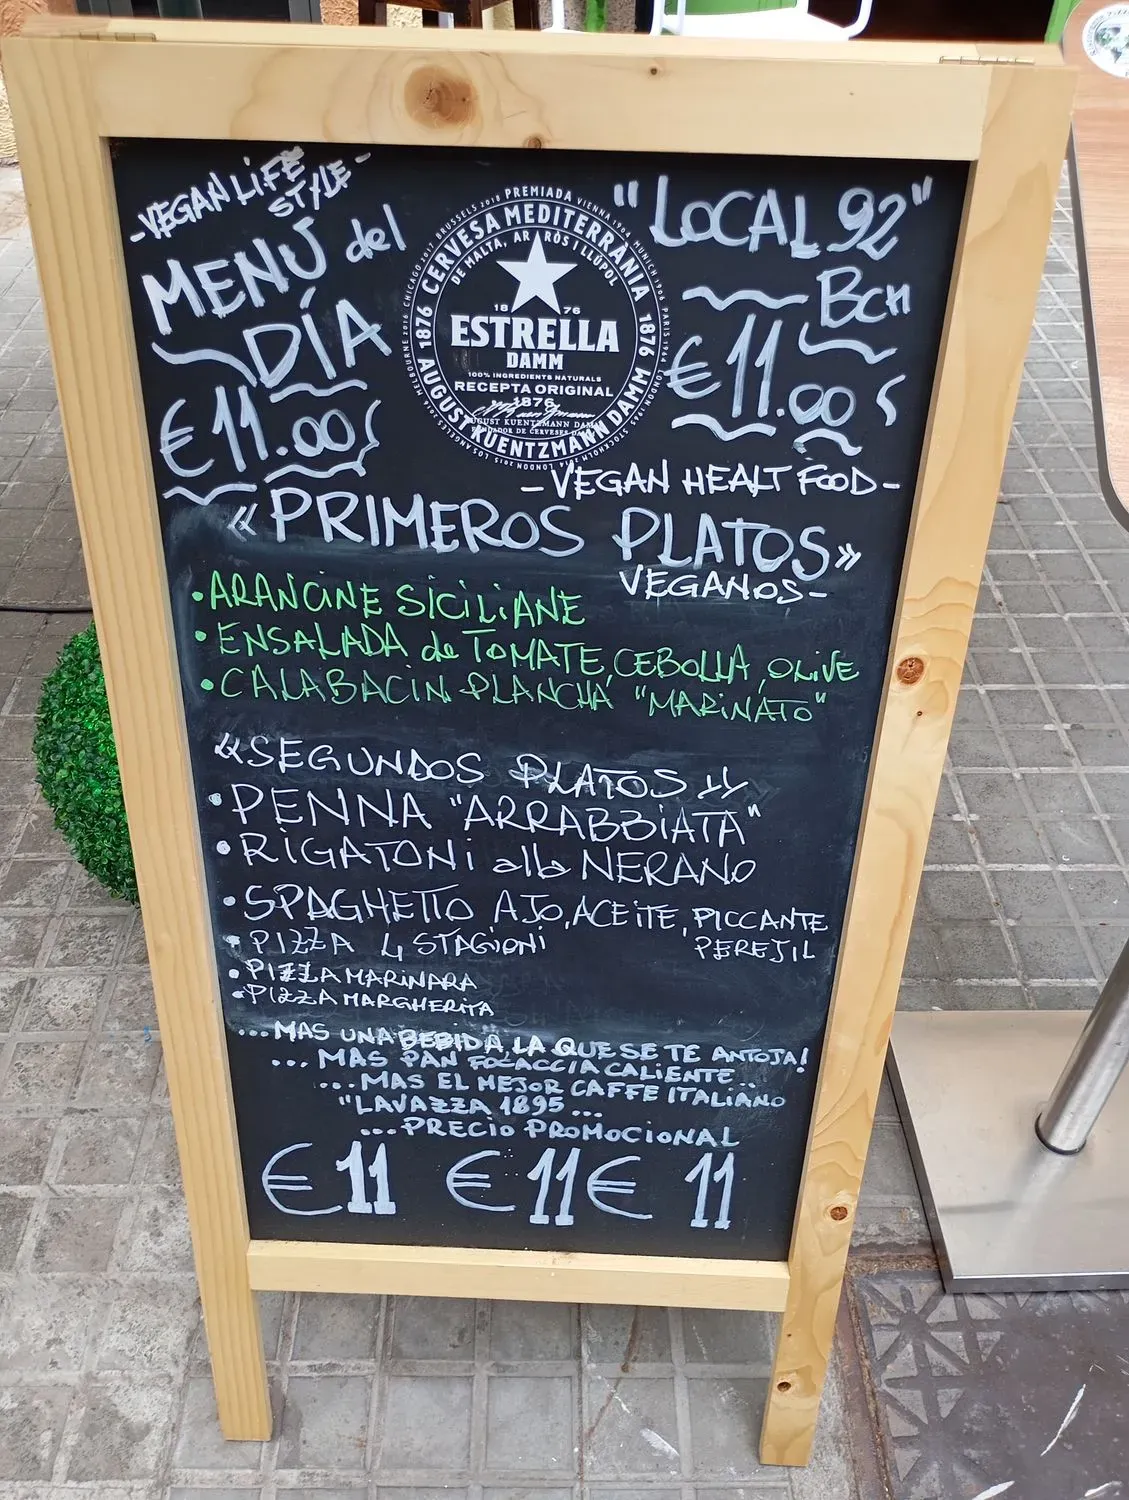 -VEGAN LIFE
STYLE-
MENÙ del
DÍA
€11.00
PREMIADA VIENNA 1904 MUNICH 1906 PARIS 1964 LONDON 1965 STOCKHOLM
MELBOURNE 2016 CHICAGO 2017 BRUSSELS 2018
LOS ANGELES 2015 LONDON
CERVESA MEDITERRÀNIA
DE MALTA, ARRÒS I LLÚPOL
1876 1876
18 76
ESTRELLA
DAMM
100% INGREDIENTS NATURALS
RECEPTA ORIGINAL
1876
AUGUST KUENTZMANN DAMM
FUNDADOR DE CERVESES DAMM
AUGUST KUENTZMANN DAMM
"LOCAL 92"
BCN
€11.00
-VEGAN HEALT FOOD-
«PRIMEROS PLATOS»
VEGANOS-
•ARANCINE SICILIANE
•ENSALADA de TOMATE, CEBOLLA, OLIVE
•CALABACIN PLANCHA "MARINATO"
«SEGUNDOS PLATOS»
•PENNA "ARRABBIATA"
•RIGATONI alla NERANO
•SPAGHETTO AJO, ACEITE, PICCANTE
PEREJIL
•PIZZA 4 STAGIONI
•PIZZA MARINARA
•PIZZA MARGHERITA
...MAS UNA BEBIDA LA QUE SE TE ANTOJA!
...MAS PAN FOCACCIA CALIENTE..
...MAS EL MEJOR CAFFE ITALIANO
"LAVAZZA 1895...
...PRECIO PROMOCIONAL
€11 €11 € 11